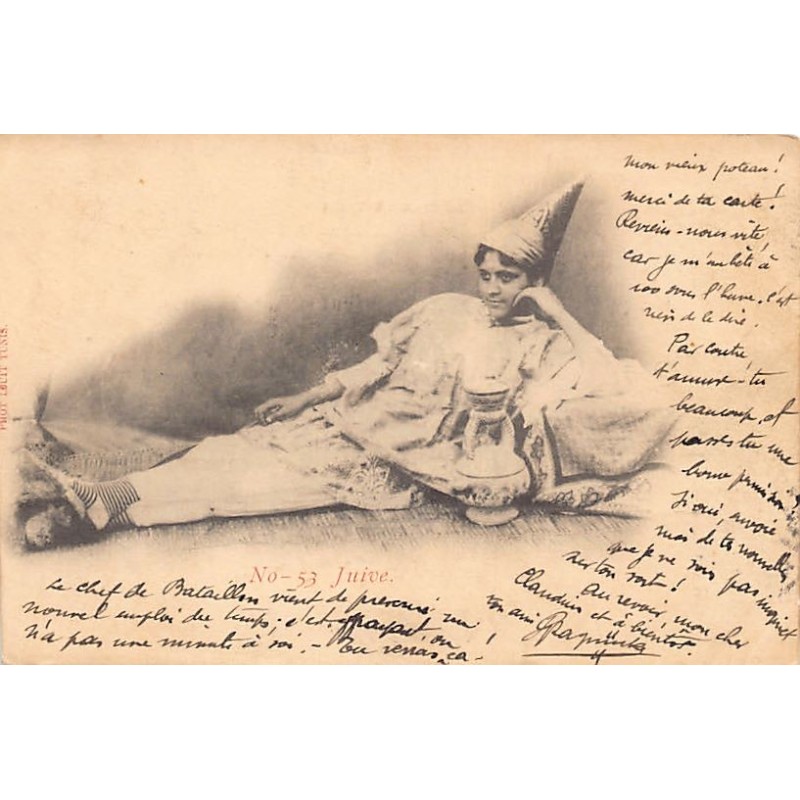 mon vieux poteau!
merci de ta carte!
Reviens-nous vite,
car je m'embête à
100 sous l'heure. c'est
rien de le dire.
Par contre
t'amuse-tu
beaucoup, et
passes tu une
bonne permission
Si oui, envoie
moi de tes nouvelles
que je ne sois pas inquiet
sur ton sort!
Au revoir, mon cher
Claudius et à bientôt.
ton ami
PHOT TUNIS.
No-53 Juive.
Le chef de Bataillon vient de prescrire un
nouvel emploi du temps; c'est effrayant, on
n'a pas une minute à soi. - Tu verras ça!